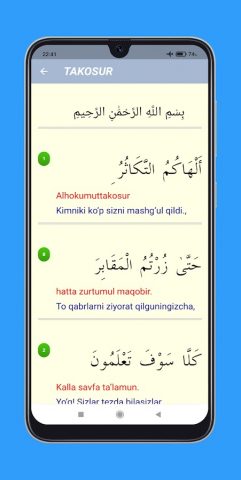 22:41
74
TAKOSUR
بِسْمِ اللَّهِ الرَّحْمَٰنِ الرَّحِيمِ
1
أَلْهَاكُمُ التَّكَاثُرُ
Alhokumuttakosur
Kimniki ko'p sizni mashg'ul qildi.,
حَتَّىٰ زُرْتُمُ الْمَقَابِرَ
hatta zurtumul maqobir.
To qabrlarni ziyorat qilguningizcha,
كَلَّا سَوْفَ تَعْلَمُونَ
Kalla savfa ta'lamun.
Yo'q! Sizlar tezda bilasizlar